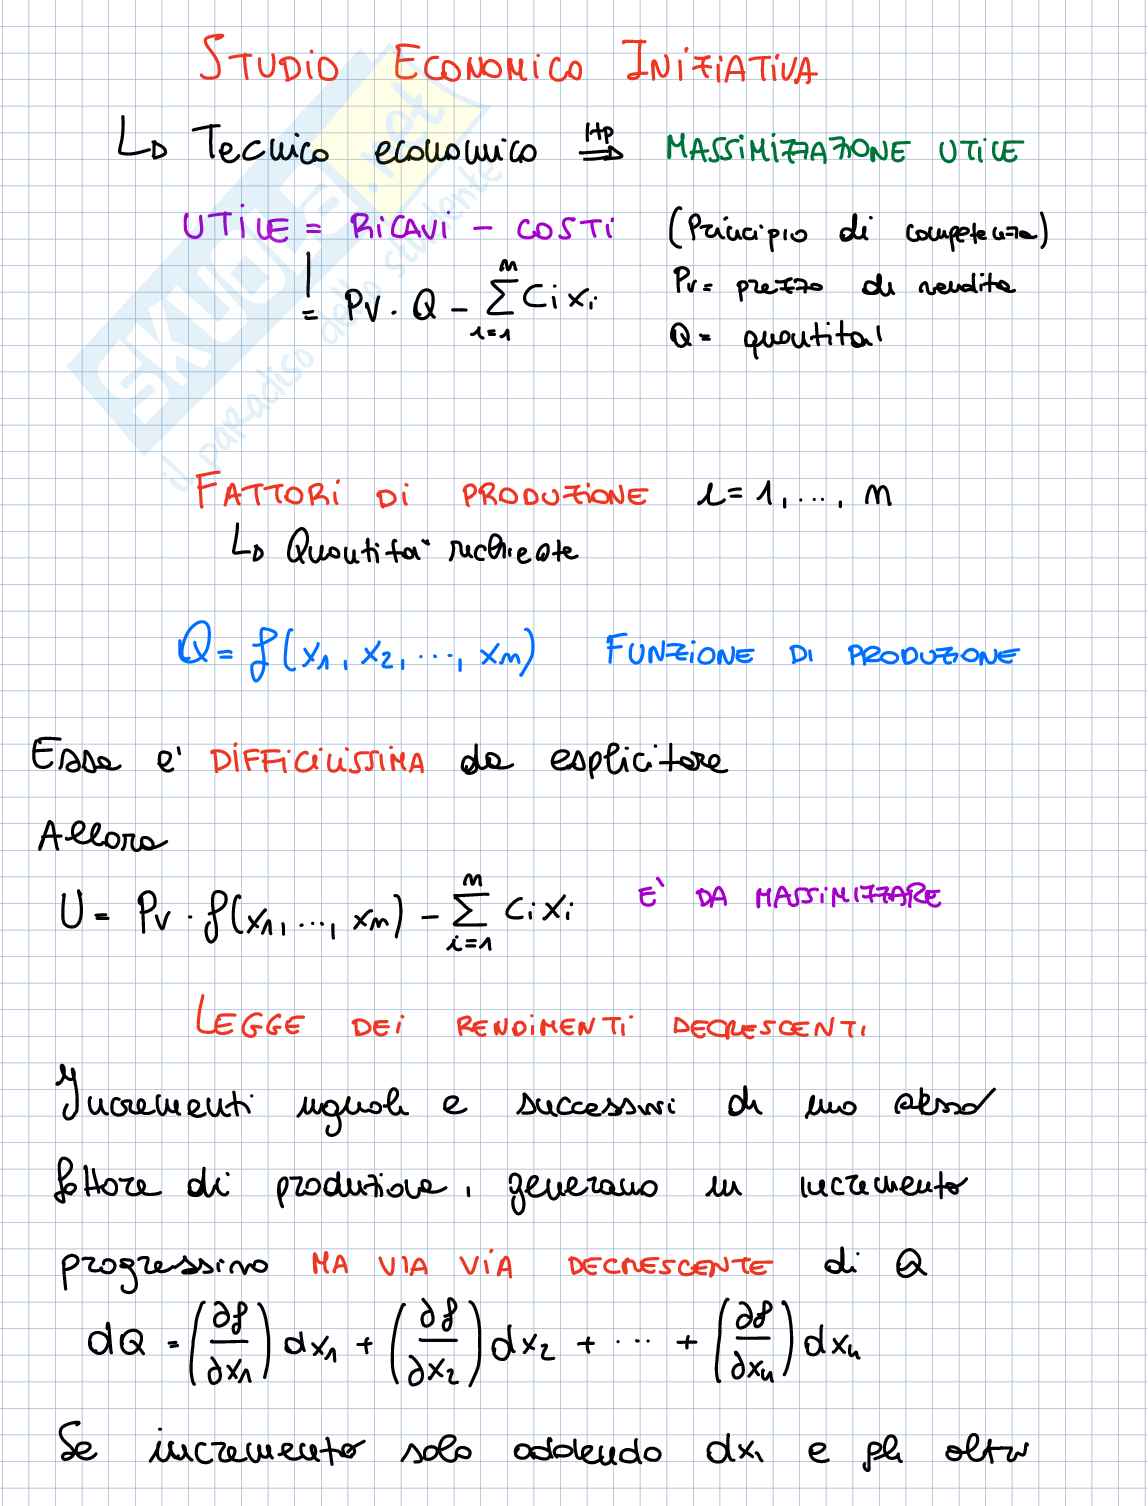 STUDIO ECONOMICO INIZIATIVA
↳ Tecnico economico ⇒ (Hp) MASSIMIZZAZIONE UTILE
UTILE = RICAVI - COSTI (Principio di competenza)
= Pv · Q - ∑_{i=1}^{n} Ci xi
Pv = prezzo di vendita
Q = quantita'
SKUOLA.net
il paradiso dello studente
FATTORI DI PRODUZIONE i = 1, ..., n
↳ Quantita' richieste
Q = f(x1, x2, ..., xn) FUNZIONE DI PRODUZIONE
Essa e' DIFFICILISSIMA da esplicitare
Allora
U = Pv · f(x1, ..., xn) - ∑_{i=1}^{n} Ci xi E' DA MASSIMIZZARE
LEGGE DEI RENDIMENTI DECRESCENTI
Incrementi uguali e successivi di uno stesso
fattore di produzione, generano un incremento
progressivo MA VIA VIA DECRESCENTE di Q
dQ = (∂f/∂x1) dx1 + (∂f/∂x2) dx2 + ... + (∂f/∂xn) dxn
Se incremento solo addendo dx1 e gli altri